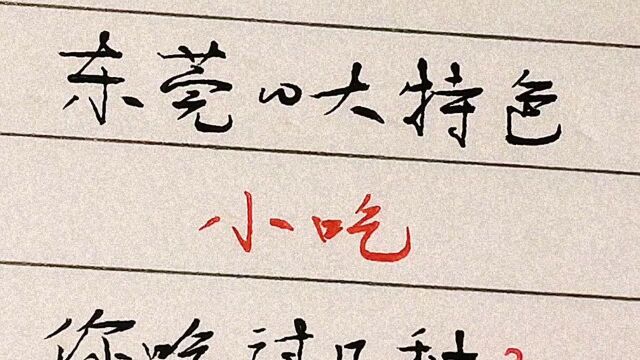 东莞10大特色
小吃
你吃过几种?